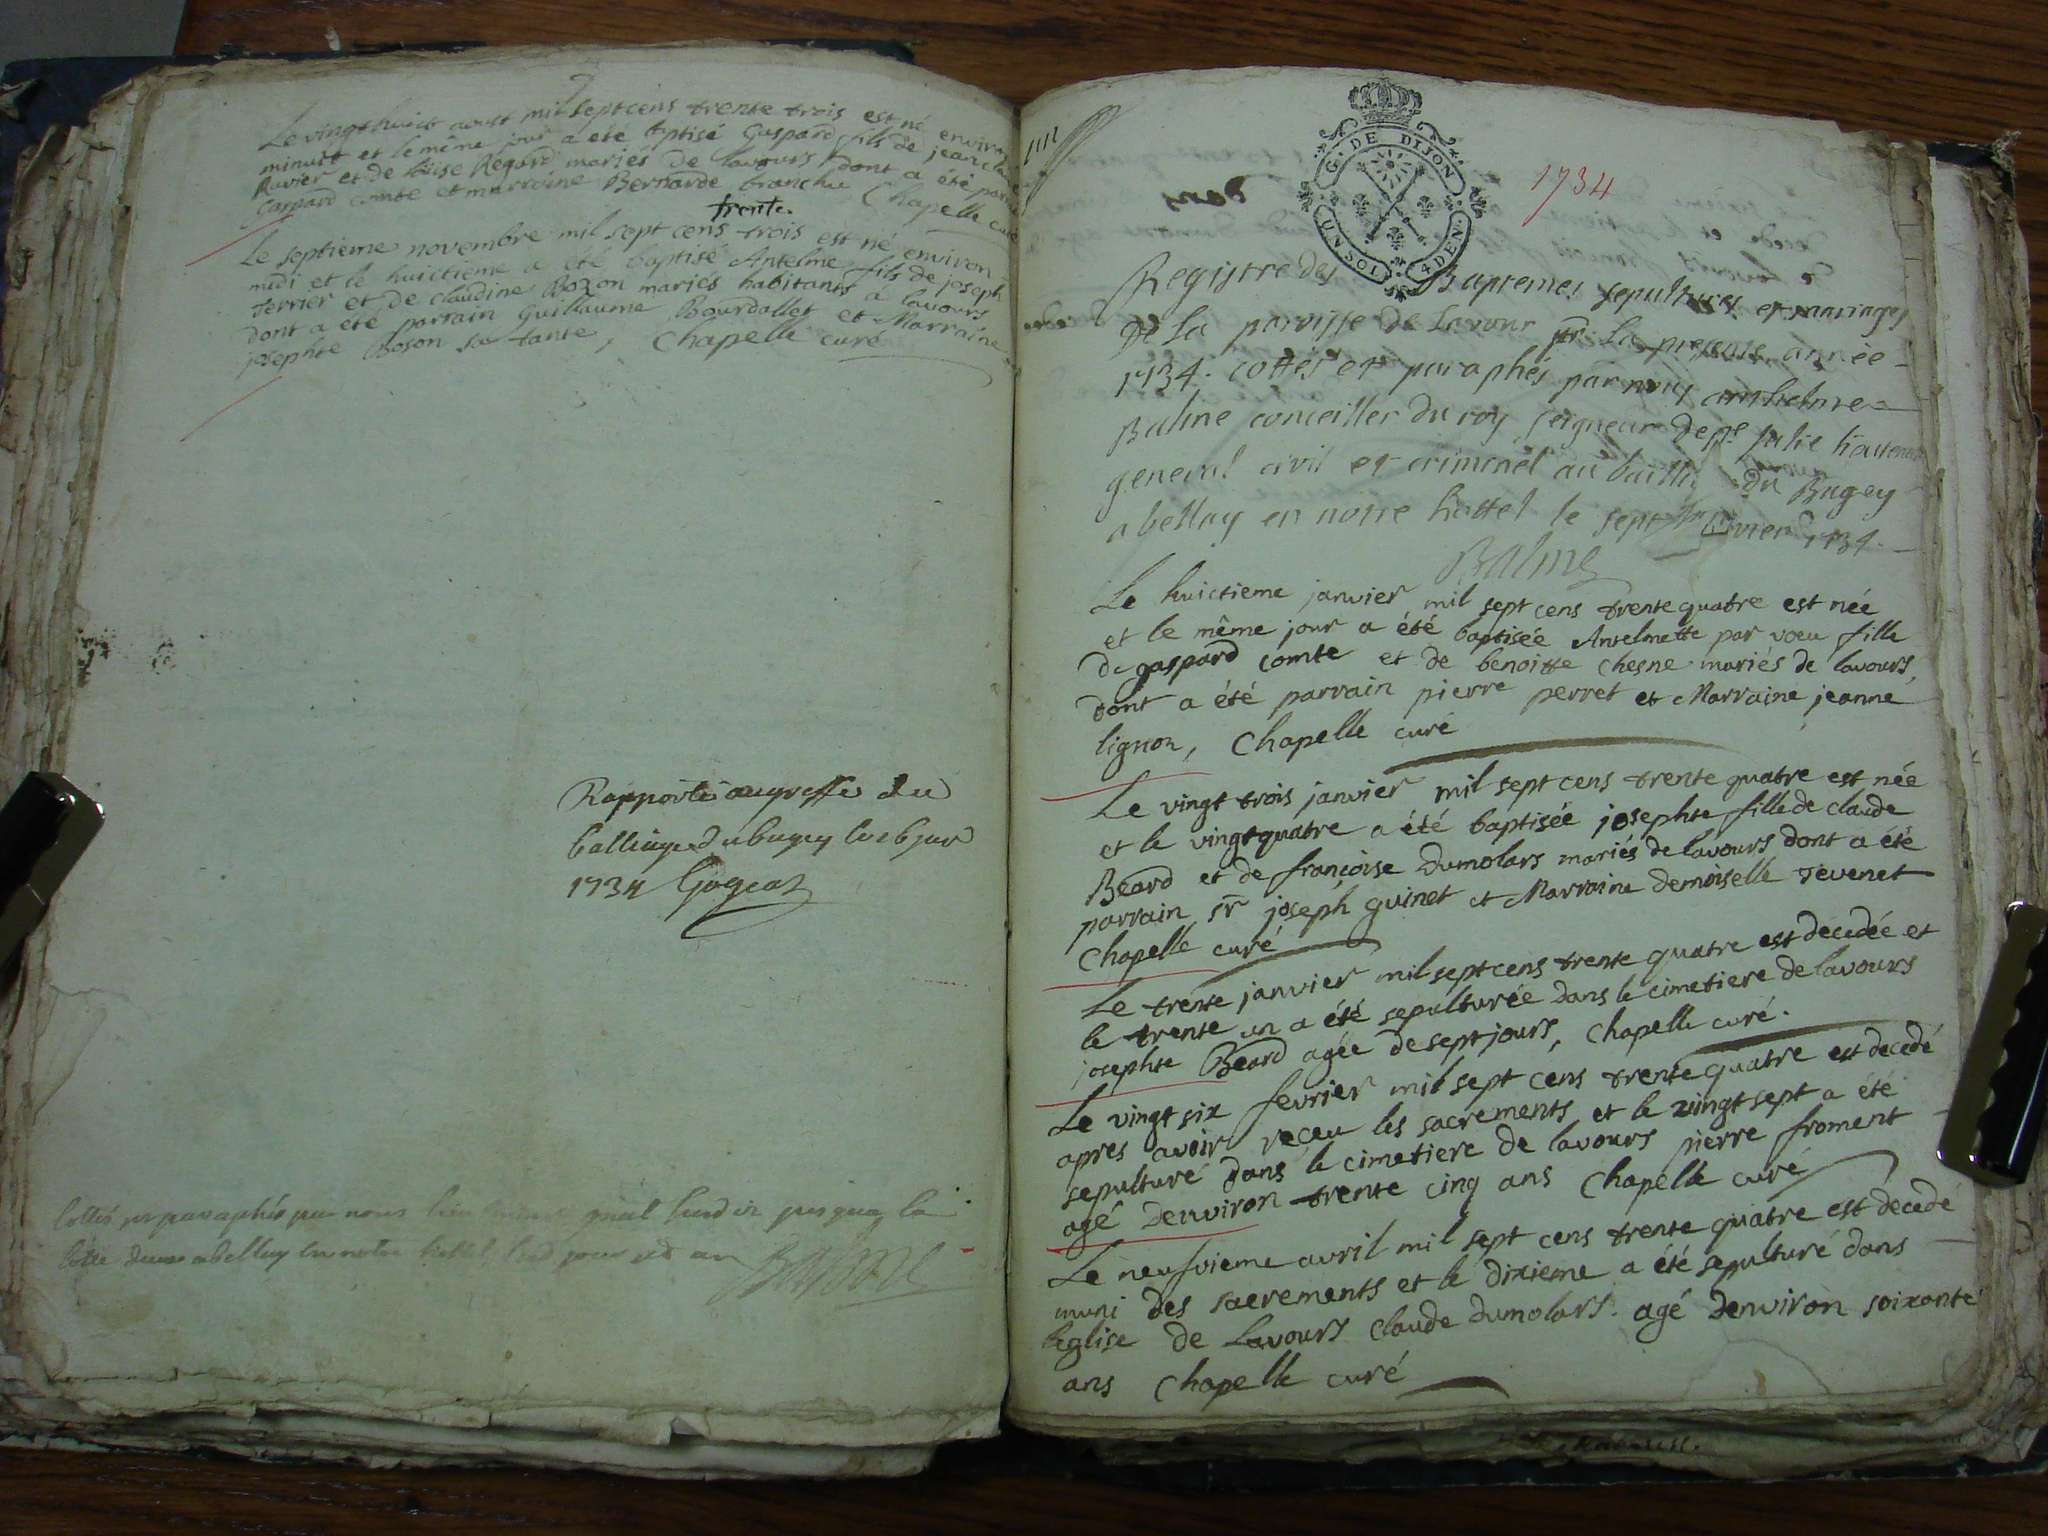 Le vingthuict aoust mil sept cens trente trois est né environ
minuit et le même jour a été bptisé Gaspard fils de jean claude
Ravier et de loüise Regard mariés de lavours dont a été parrain
Gaspard comte et marraine Bernarde tranchu Chapelle curé
trente
Le septieme novembre mil sept cens trois est né environ
midi et le huictieme a été baptisé Antelme fils de joseph
terrier et de claudine Bozon mariés habitants a lavours
dont a été parrain Guillaume Bourdallet et Marraine
josephte Boson sa tante, Chapelle curé
Rapporté au greffe du
balliage du bugey le
1734
Cottés et paraphés par nous
en notre hottel
1734
G. DE DIJON
UN SOL 4 DEN.
dans
Registre des Baptemes sepultures et mariages
de la paroisse de Lavour pr La presente année
1734. cottés et paraphés par nous anthelme
Balme conceiller du roy seigneur de ste julie lieutenant
general civil et criminel au bailli. du Bugey
a bellay en notre hottel le sept janvier 1734.
Balme
Le huictieme janvier mil sept cens trente quatre est née
et le même jour a été baptisée Antelmette par voeu fille
de gaspard comte et de benoitte chesne mariés de lavours,
dont a été parrain pierre perret et Marraine jeanne
lignon, Chapelle curé
Le vingt trois janvier mil sept cens trente quatre est née
et le vingt quatre a été baptisée josephte fille de claude
Beard et de françoise dumolars mariés de lavours dont a été
parrain sr joseph guinet et Marraine demoiselle Tevenet
Chapelle curé
Le trente janvier mil sept cens trente quatre est decedée et
le trente un a été sepulturée dans le cimetiere de lavours
josephte Beard agée de sept jours, Chapelle curé.
Le vingt six fevrier mil sept cens trente quatre est decedé
apres avoir receu les sacrements et le vingt sept a été
sepulturé dans le cimetiere de lavours pierre froment
agé denviron trente cinq ans Chapelle curé
Le neufvieme avril mil sept cens trente quatre est decedé
muni des sacrements et le dixieme a été sepulturé dans
leglise de Lavours Claude dumolars. agé denviron soixante
ans Chapelle curé